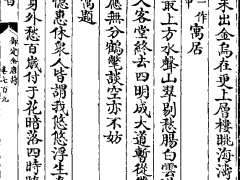 未出金烏在更上層樓眺海濤
一作寓居
最上方水聲山翠剔愁腸白雲
人客堂終去四明成大道暫從
應無分鶴氅談空亦不妨
寓題
休衆人皆謂我悠悠浮生
身外愁百歲付于花時落四時
御定全唐詩
卷七百九